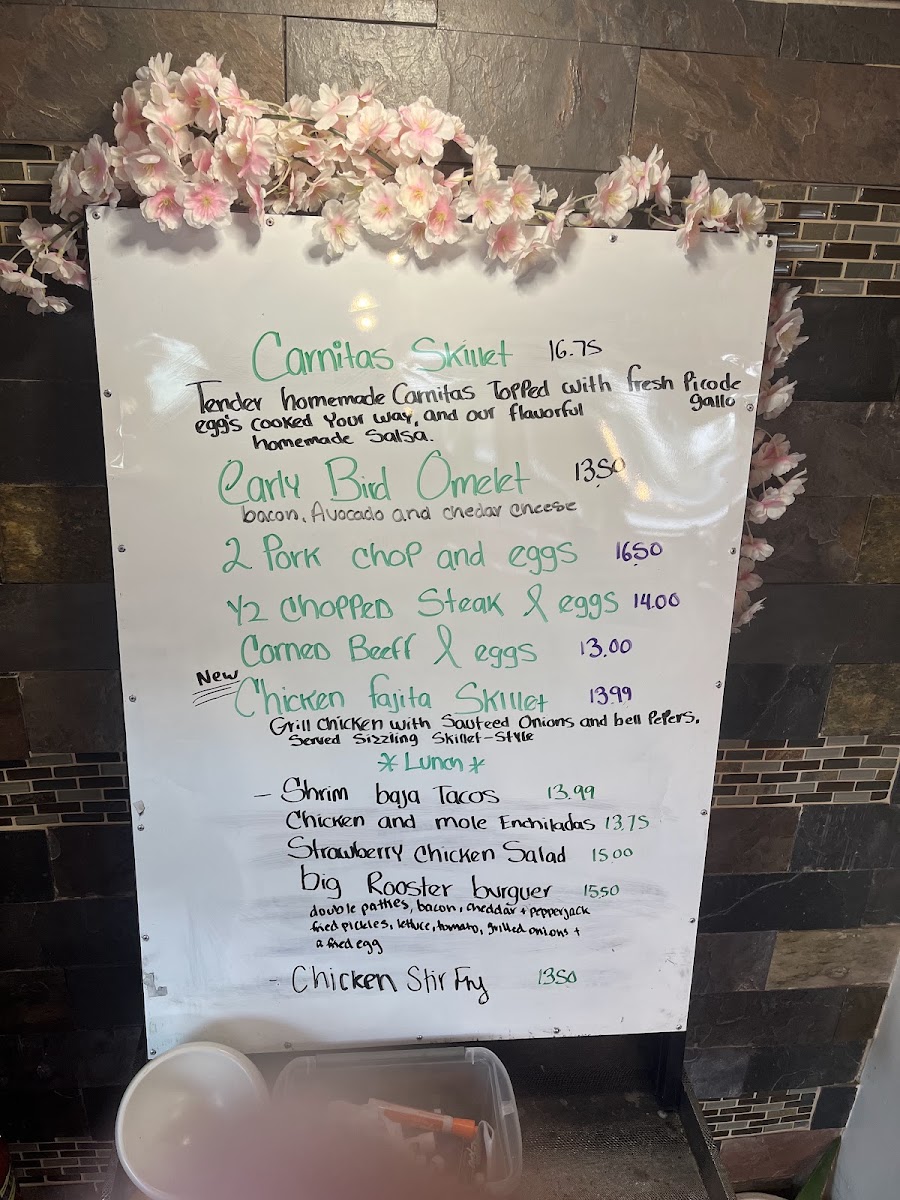 Carnitas Skillet 16.75
Tender homemade Carnitas Topped with fresh Picode gallo
egg's cooked Your way, and our flavorful
homemade Salsa.
Early Bird Omelet 13.50
bacon, Avocado and chedar cheese
2 Pork chop and eggs 16.50
1/2 Chopped Steak & eggs 14.00
Corned Beeff & eggs 13.00
New
Chicken fajita Skillet 13.99
Grill Chicken with Sauteed Onions and bell Pepers.
Served Sizzling Skillet-Style
*Lunch*
- Shrim baja Tacos 13.99
Chicken and mole Enchiladas 13.75
Strawberry Chicken Salad 15.00
big Rooster burguer 15.50
double patties, bacon, cheddar + pepperjack
fried pickles, lettuce, tomato, grilled onions +
a fried egg
- Chicken Stir Fry 13.50